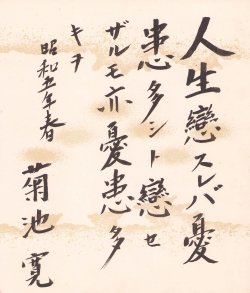 人生戀スレバ憂
患多シト戀セ
ザルモ亦憂患多
キヲ
昭和五年春
菊池寛